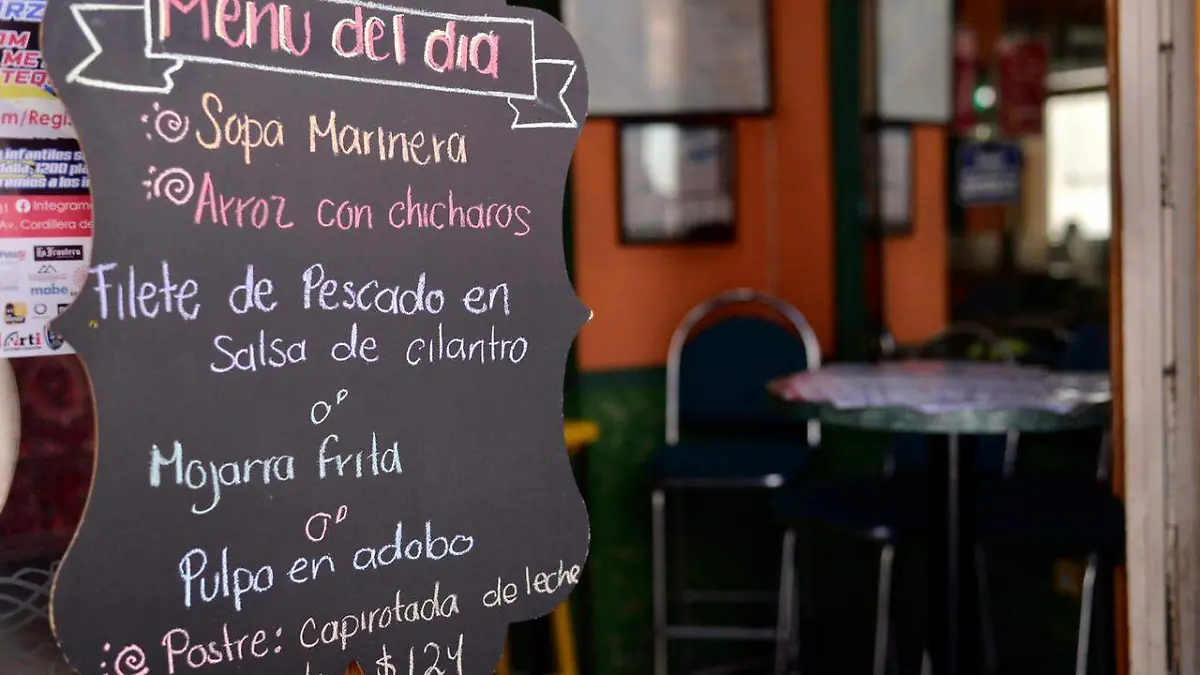 Menu del día
Sopa Marinera
Arroz con chicharos
Filete de Pescado en
Salsa de cilantro
o°
Mojarra frita
o°
Pulpo en adobo
Postre: Capirotada de leche
$124
m/Regis
infantiles s
1200 pla
emios a los i
Integram
Av. Cordillera de
La Frontera
mabe
arti